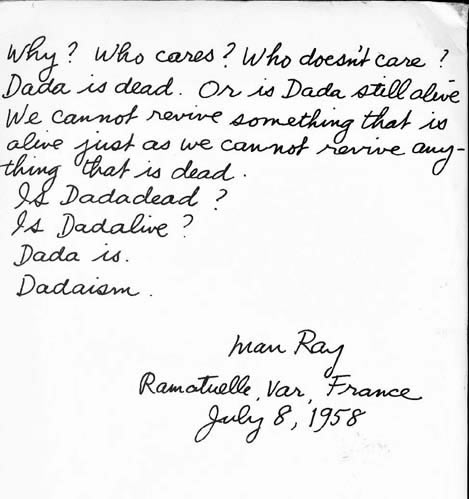 Why? Who cares? Who doesn't care?
Dada is dead. Or is Dada still alive
We cannot revive something that is
alive just as we cannot revive any-
thing that is dead.
Is Dadadead?
Is Dadalive?
Dada is.
Dadaism.
Man Ray
Ramatuelle, Var, France
July 8, 1958